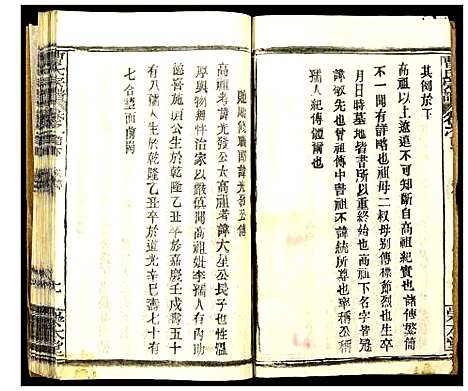 其例於下
高祖以上遼遠不可知斷自高祖紀實也諸傳繁簡
不一因有詳略也祖母二叔母別傳標節烈也生卒
月日時墓地皆書所以重終始也高祖下名字皆冠
諱敬先也曾祖傳中昔祖不諱統所尊也率稱公稱
孺人紀傳體也
馳贈修職郎諱光發公傳
高祖考諱光發公太高祖考諱大星公長子也性溫
厚與物無忤治家以嚴値開高祖妣李孺人有淑德
能喜施濟公生於乾隆乙丑卒於嘉慶壬戌壽五十
有八孺人生於乾隆乙丑卒於道光辛巳壽七十有
七合塟面前崗